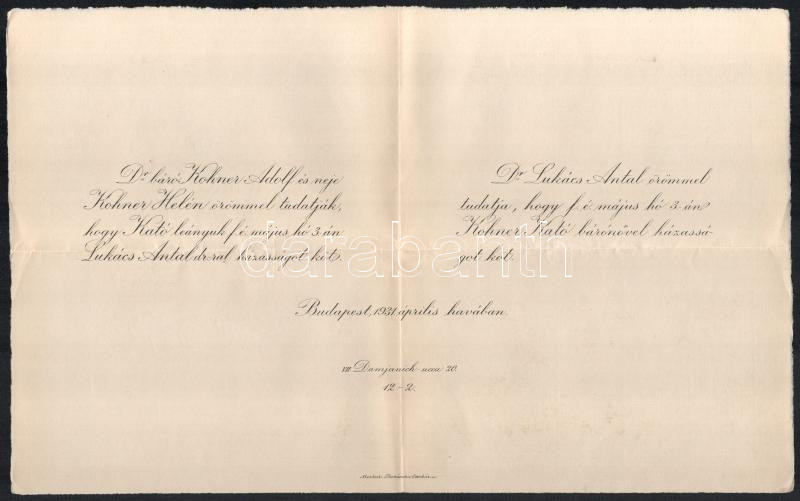 Dr. báró Kohner Adolf és neje
Kohner Helén örömmel tudatják,
hogy Kató leányuk f. é. május hó 3-án
Lukács Antal dr.-ral házasságot köt.
Dr. Lukács Antal örömmel
tudatja, hogy f. é. május hó 3-án
Kohner Kató bárónővel házassá-
got köt.
Budapest, 1931 április havában.
VII Damjanich-ucca 20.
12-2.
darabanth